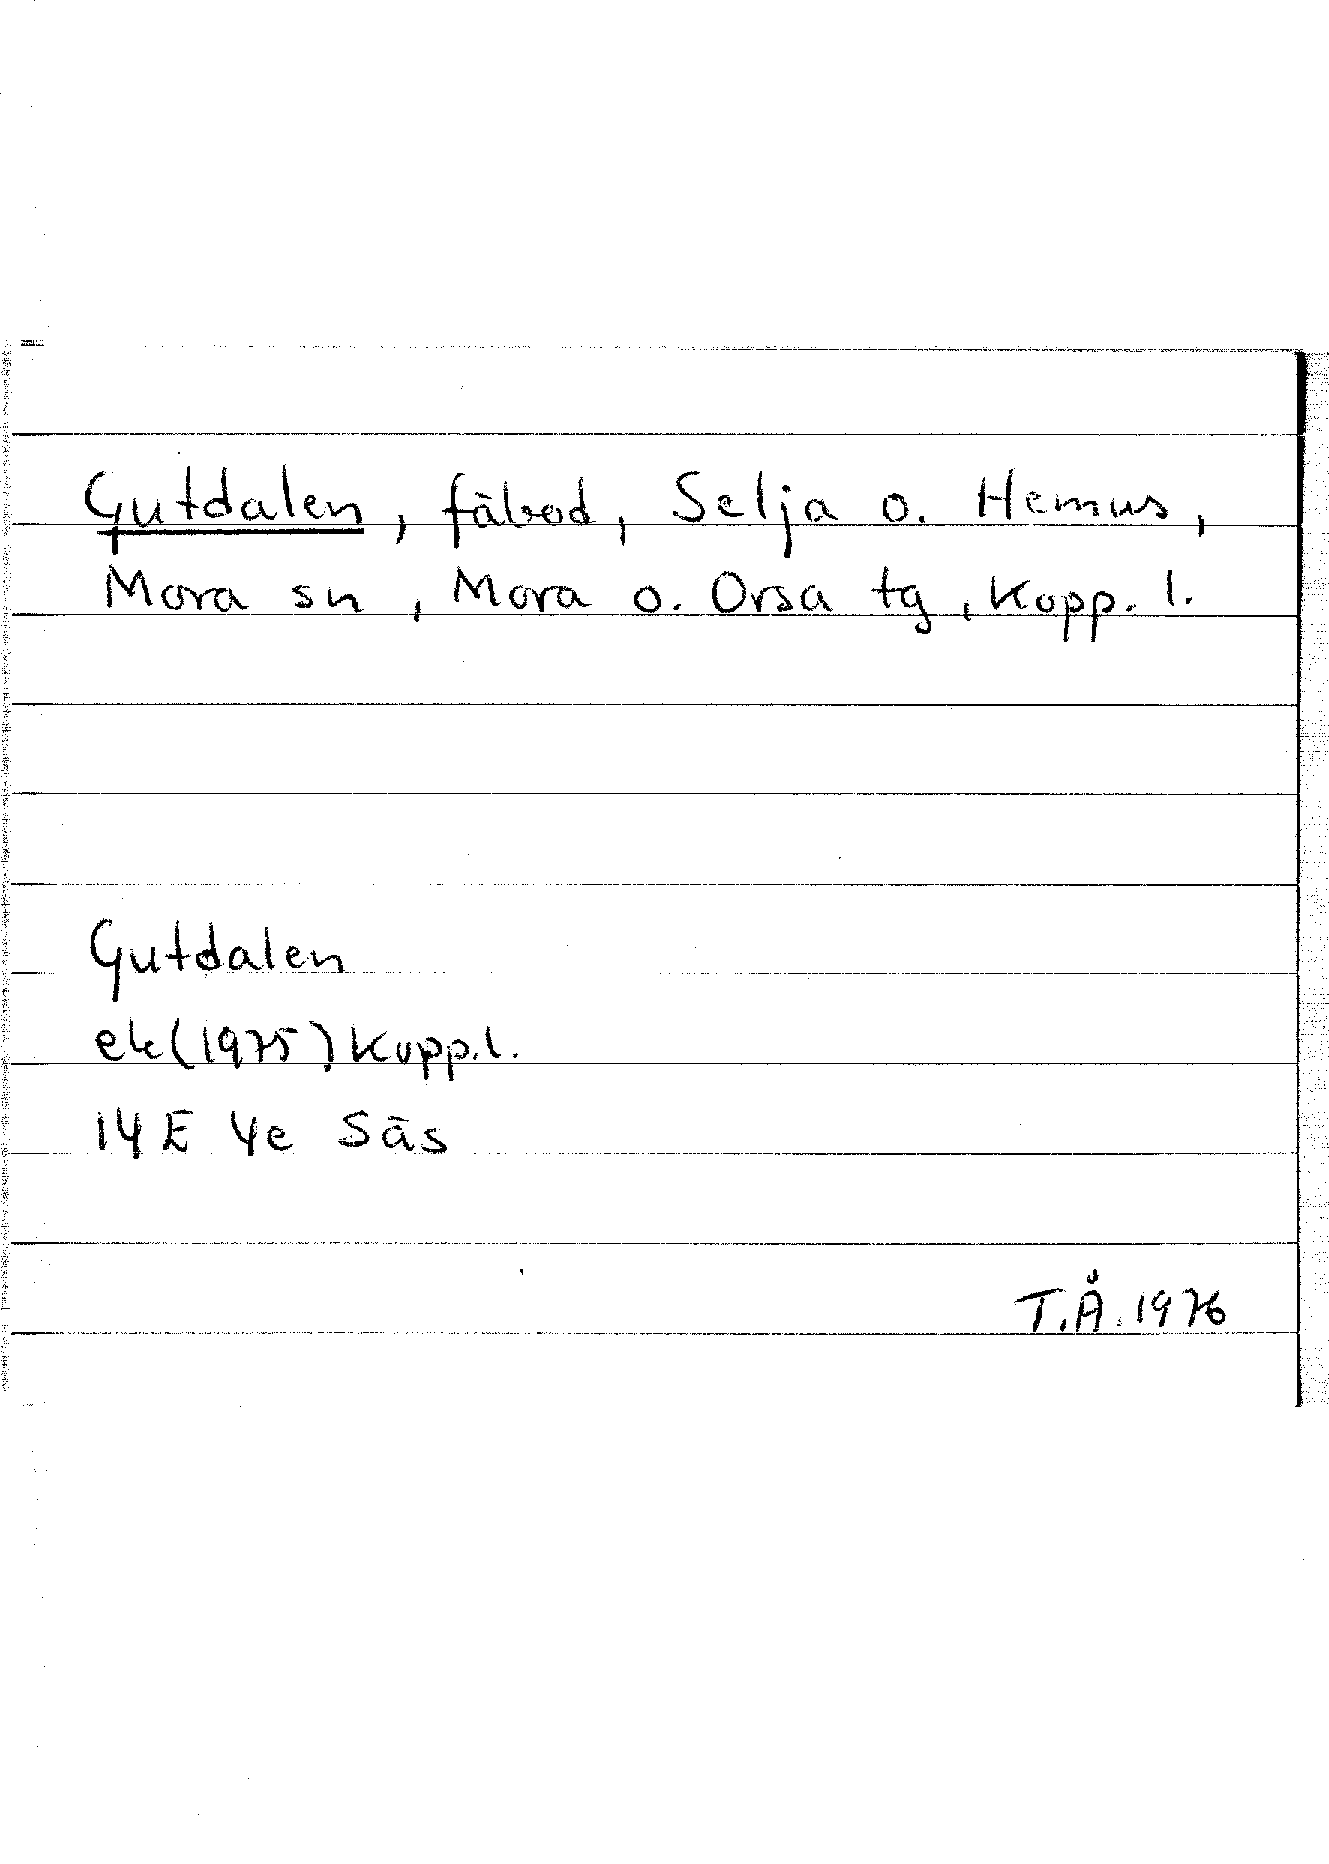 Gutdalen, fäbod, Selja o. Hemus,
Mora sn, Mora o. Orsa tg, Kopp. l.
Gutdalen
ek (1975) Kopp. l.
14 E 4e Säs
T.Å. 1976